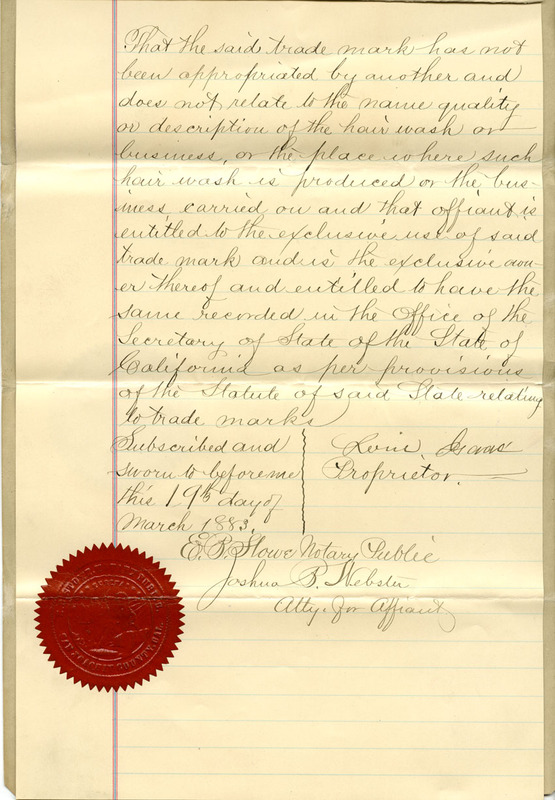 That the said trade mark has not
been appropriated by another and
does not relate to the name quality
or description of the hair wash or
business, or the place where such
hair wash is produced or the bus-
iness carried on and that affiant is
entitled to the exclusive use of said
trade mark and is the exclusive own-
er thereof and entitled to have the
same recorded in the Office of the
Secretary of State of the State of
California as per provisions
of the Statute of said State relating
to trade marks
Subscribed and
sworn to before me
this 19th day of
March 1883.
Proprietor.
E. B. Stowe Notary Public
Joshua B. Webster
Atty. for Affiant